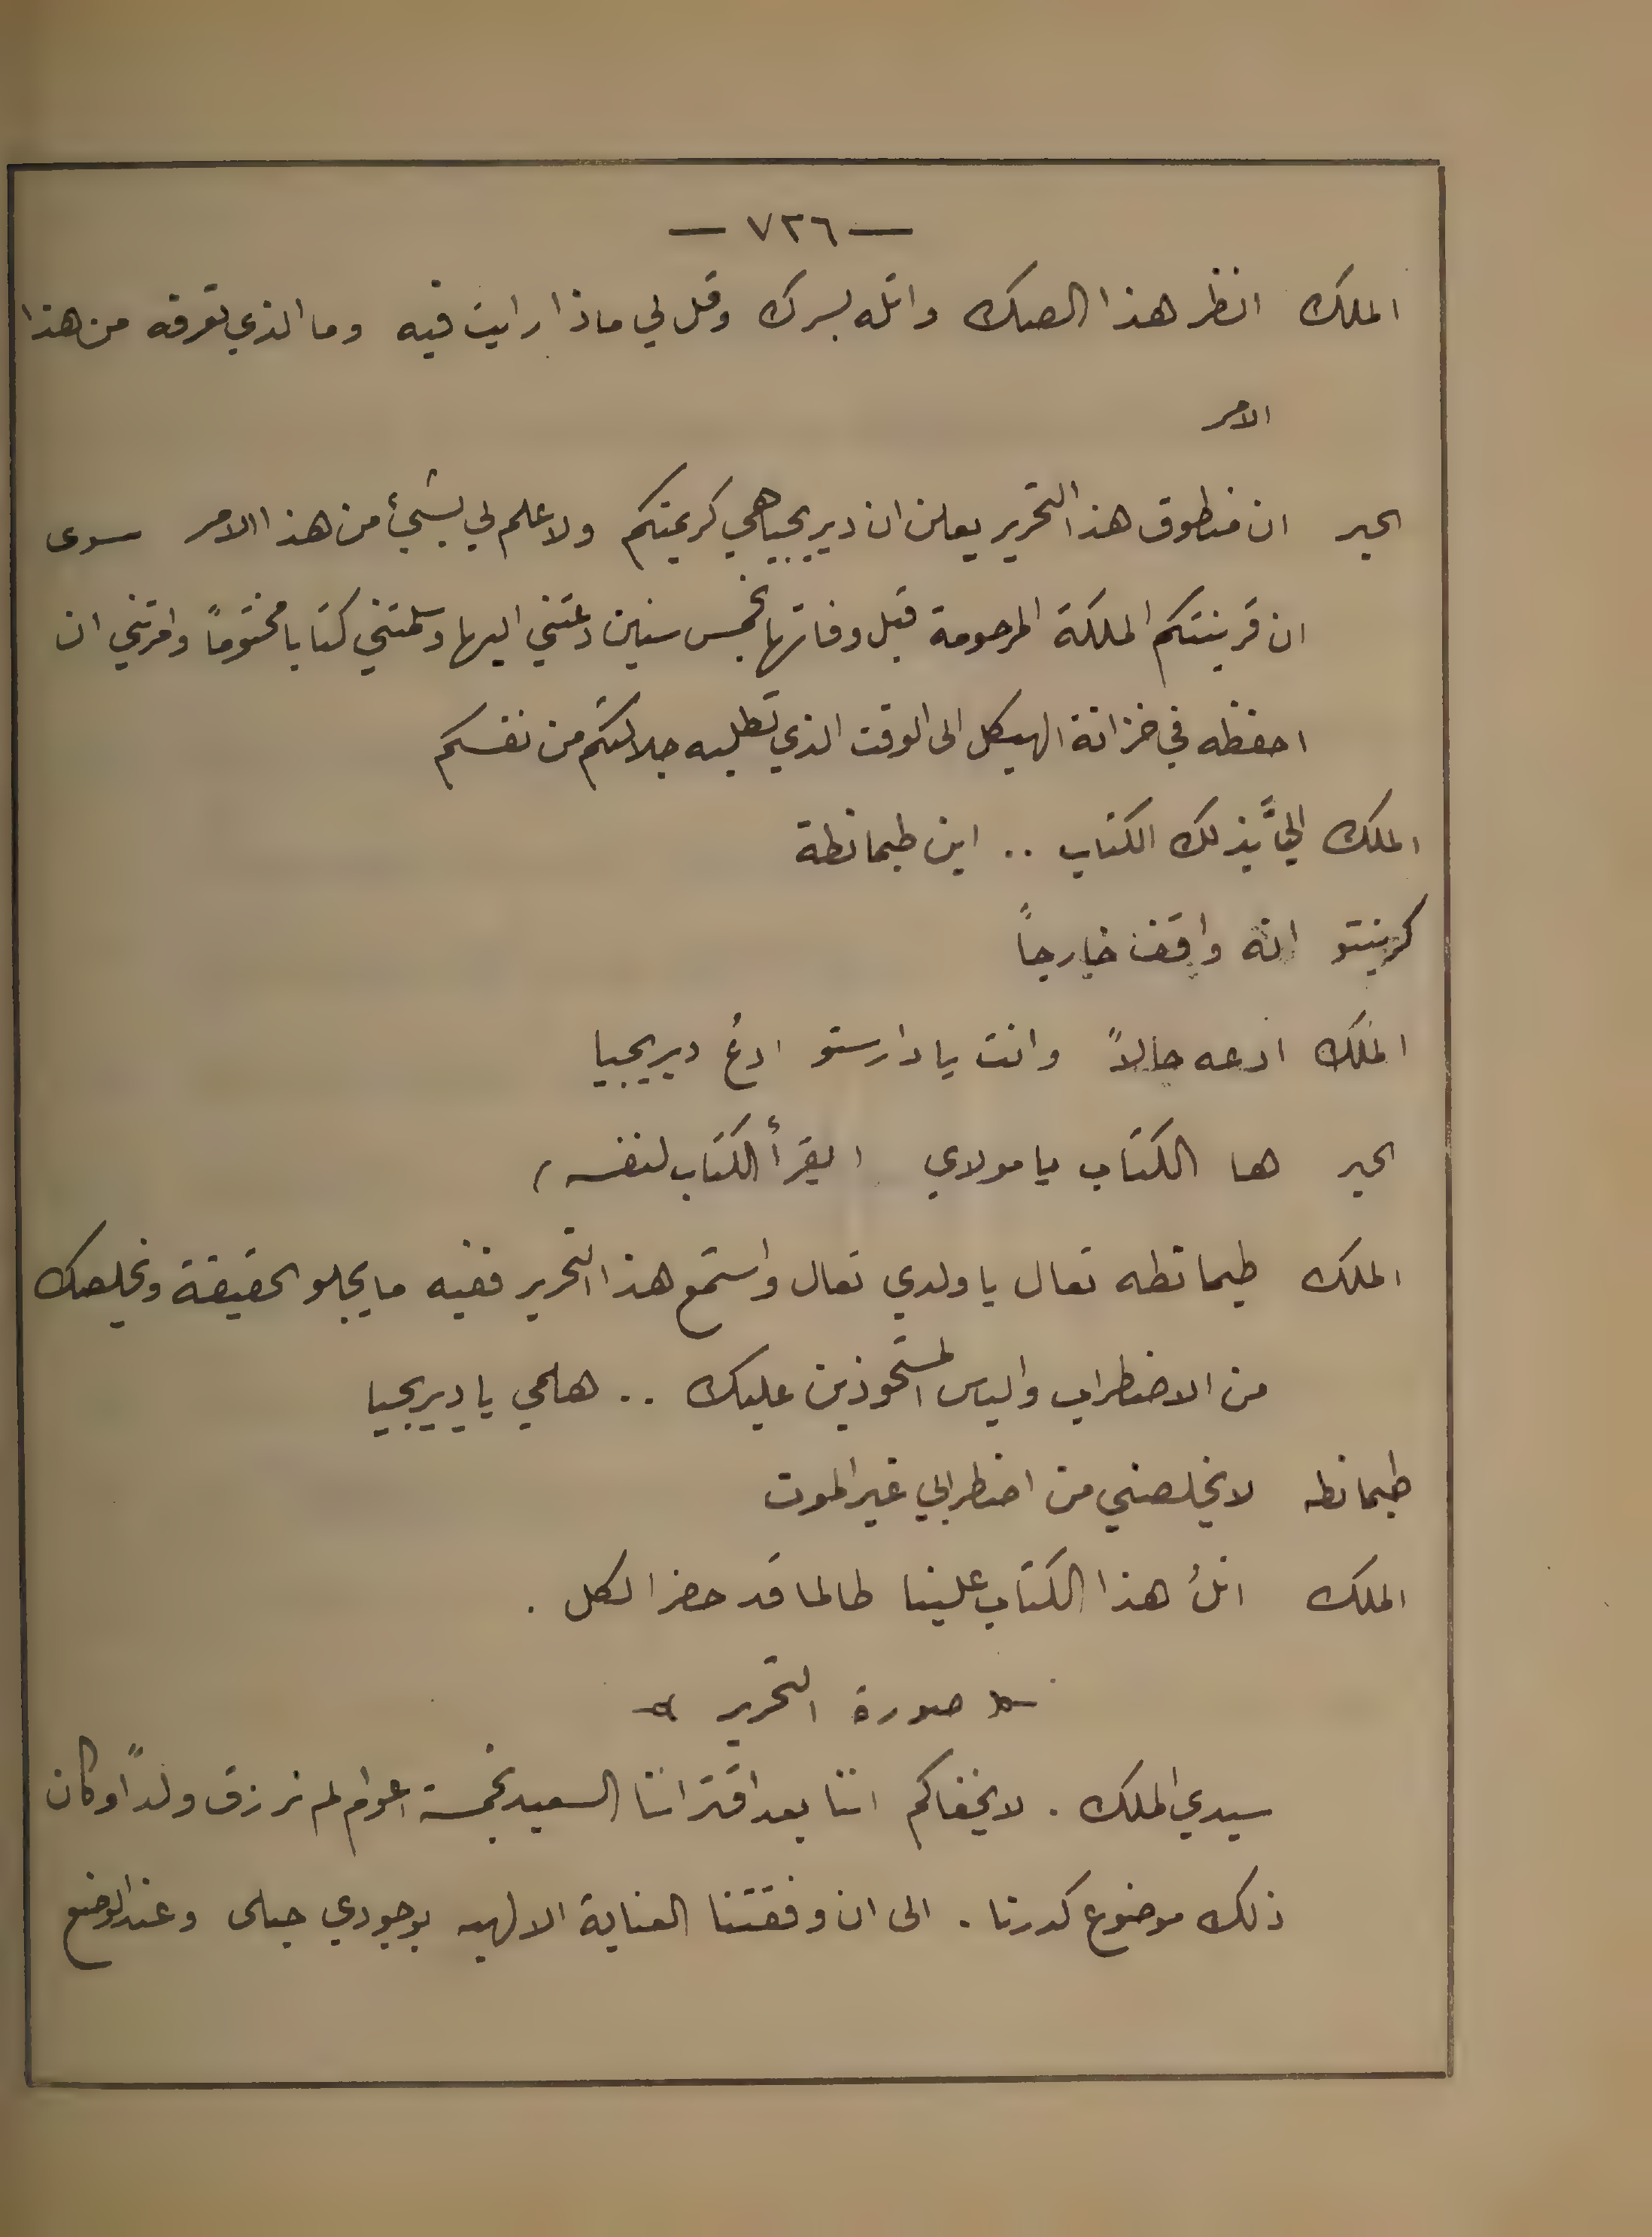 — ٧٢٦ —
الملك انظر هذا الصك واتله بسرك وقل لي ماذا رايت فيه وما الذي تعرفه من هذا
الامر
الحبر ان منطوق هذا التحرير يعلن ان ديريجيا هي كريمتكم ولا علم لي بشيئ من هذا الامر سوى
ان قرينتكم الملكة المرحومة قبل وفاتها بخمس سنين دعتني اليها وسلمتني كتابا مختوماً وامرتني ان
احفظه في خزانة الهيكل الى الوقت الذي تطلبه جلالتكم من نفسكم
الملك اليَّ بذلك الكتاب .. اين طيمانطة
كرينتو انه واقف خارجاً
الملك ادعه حالاً وانت يا دارستو ادعُ ديريجيا
الحبر ها الكتاب يا مولاي ( يقرأ الكتاب لنفسه )
الملك طيمانطه تعال يا ولدي تعال واستمع هذا التحرير ففيه ما يجلو الحقيقة ويخلصك
من الاضطراب والياس المستحوذين عليك .. هلمي يا ديريجيا
طيمانطه لا يخلصني من اضطرابي غير الموت
الملك اتلُ هذا الكتاب علينا طالما قد حضر الكل .
صورة التحرير
سيدي الملك . لا يخفاكم اننا بعد اقتراننا السعيد بخمسة اعوام لم نرزق ولداً وكان
ذلك موضوع كدرنا . الى ان وفقتنا العناية الالهيه بوجودي حبلى وعند الوضع